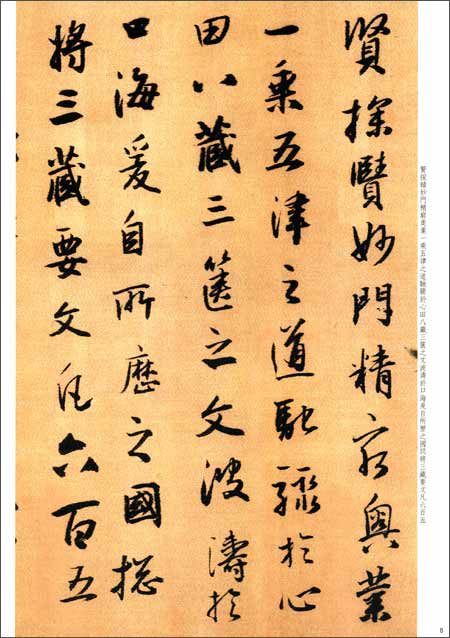 賢探賾妙門精窮奧業
一乘五津之道馳驟於心
田八藏三篋之文波濤於
口海爰自所歷之國揔
將三藏要文凡六百五
賢探賾妙門精窮奧業一乘五律之道馳驟於心田八藏三篋之文波濤於口海爰自所歷之國揔將三藏要文凡六百五
6